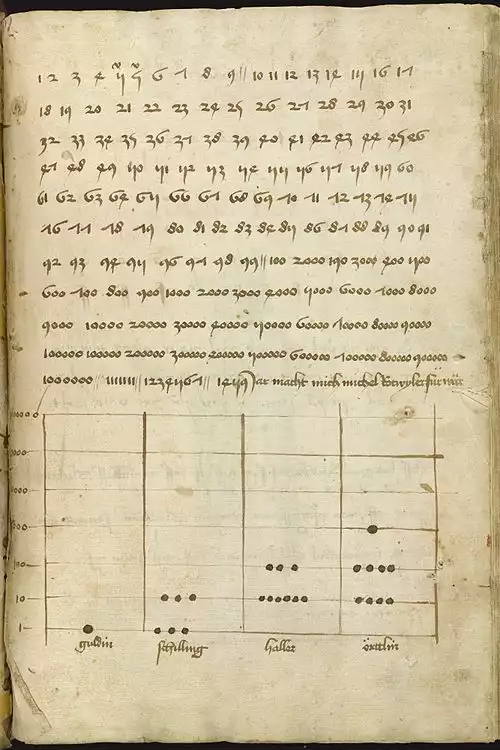 1 2 3 4 5 5 6 7 8 9 // 10 11 12 13 14 15 16 17
18 19 20 21 22 23 24 25 26 27 28 29 30 31
32 33 34 35 36 37 38 39 40 41 42 43 44 45 46
47 48 49 50 51 52 53 54 55 56 57 58 59 60
61 62 63 64 65 66 67 68 69 70 71 72 73 74 75
76 77 78 79 80 81 82 83 84 85 86 87 88 89 90 91
92 93 94 95 96 97 98 99 // 100 2000 190 3000 400 500
600 700 800 900 1000 2000 3000 4000 5000 6000 7000 8000
9000 10000 20000 30000 40000 50000 60000 70000 80000 90000
100000 100000 200000 300000 400000 500000 600000 700000 800000 900000
1000000 // 1111111 // 1234567 // ar macht mich michel für war
100
10
1
guldin schilling haller örttlin